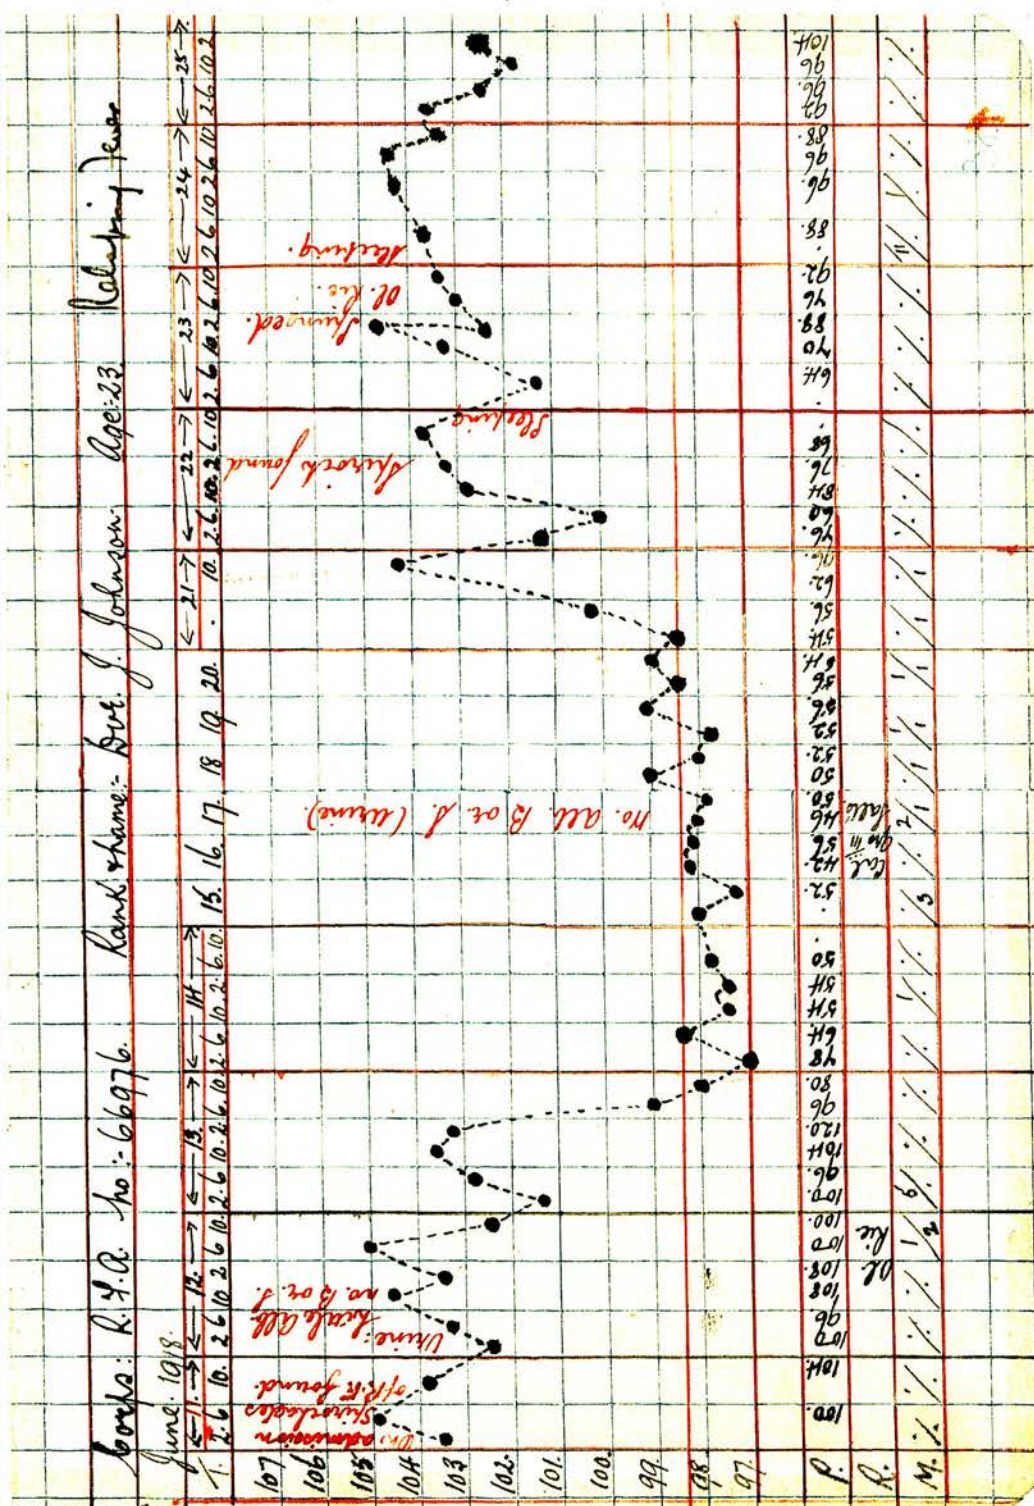 Corps: R.F.A. No:- 66976. Rank & Name:- Dvr. J. Johnson. Age: 23 Relapsing Fever
June. 1918.
← 11. → ← 12. → ← 13. → ← 14 → 15. 16. 17. 18 19 20. ← 21 → ← 22 → ← 23 → ← 24 → ← 25 →
T. 2. 6 10. 2 6 10 2 6 10. 2 6 10. 2 6. 10. 2. 6. 10. 2. 6. 10. . 10. 2. 6. 10. 2. 6. 10. 2. 6 10. 2. 6. 10 2 6 10 2 6 10 2 6 10. 2
107
106
105
104
103
102
101.
100.
99.
98.
97.
On admission
Spirochaetes
of R.F. found.
Urine:
no. B or S.
No. alb. B or S. (Urine).
Spiroch found
Sleeping
Spunged.
Ol. Ric.
Sleeping.
P. 100. 104 100 96 108 108. 100 100. 100. 96. 104 120. 96 80. 48 64 54 54 50 . . 52. 42. 56 46 50. 50 52. 52 56. 56 64. 54. 56 62. 96. 96. 60 84 76. 68 . . 64 70 88. 96 92 . 88. 96. 96 88. 92 96. 96 104
R. Ol Ric
Cal.
M.